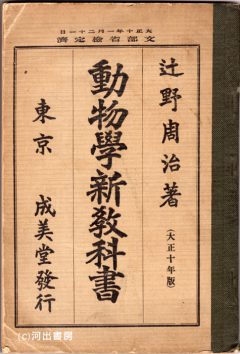 大正十年一月二十一日
文部省檢定濟
辻野周治著
(大正十年版)
動物學新教科書
東京 成美堂發行
(c)河出書房